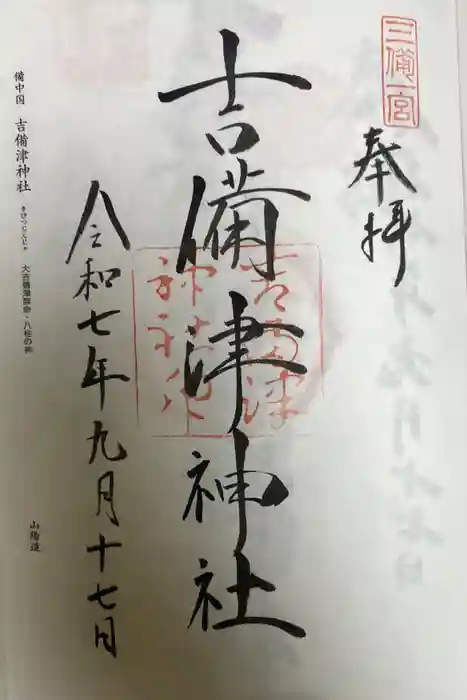 三備一宮
奉拝
吉備津神社
令和七年九月十七日
備中国 吉備津神社 きびつじんじゃ 大吉備津彦命・八柱の神
山陽道